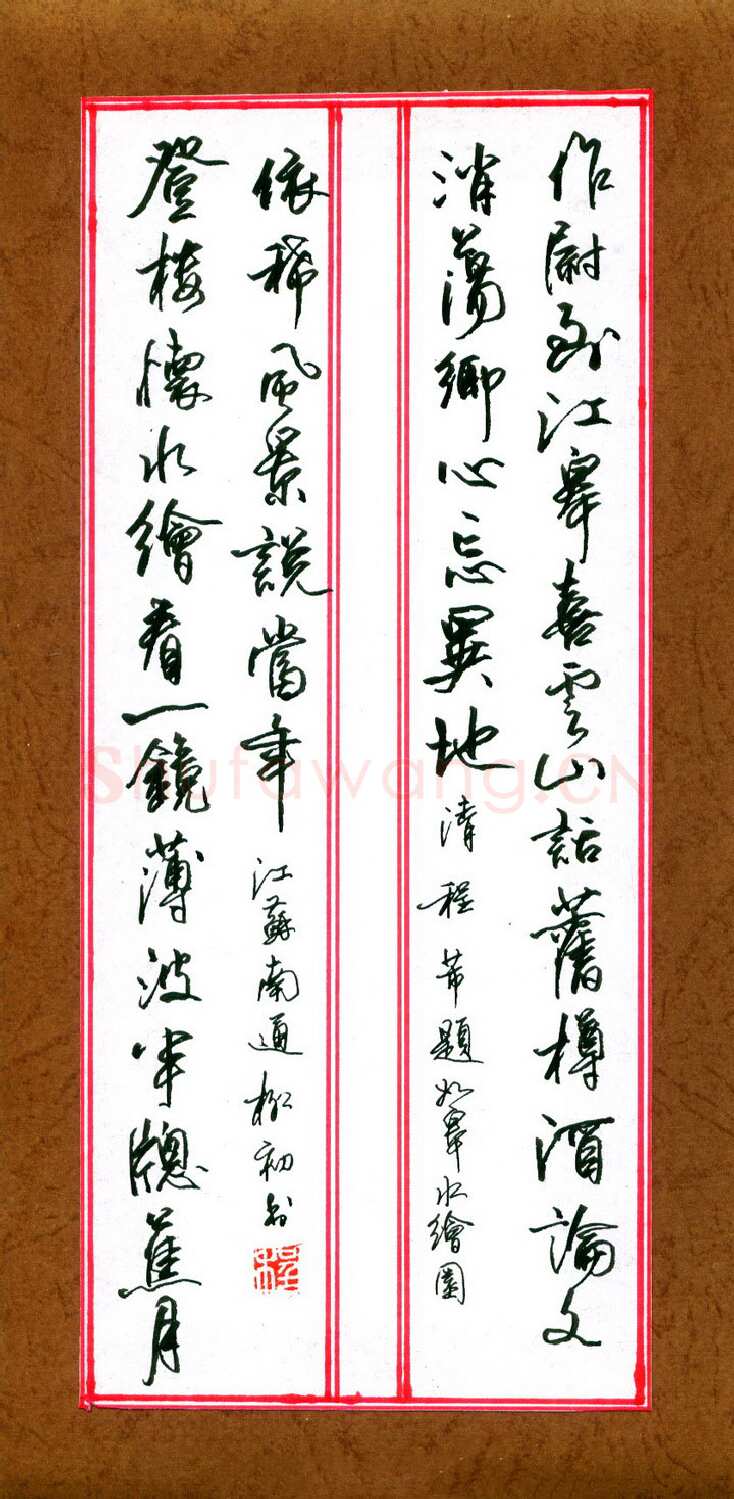 作尉到江皋喜雲山話舊樽酒論文
消蕩鄉心忘異地
清程芾題如皋水繪園
登樓懷水繪看一鏡薄波半牕蕉月
依稀風景說當年
江蘇南通初書
Shufawang.CN